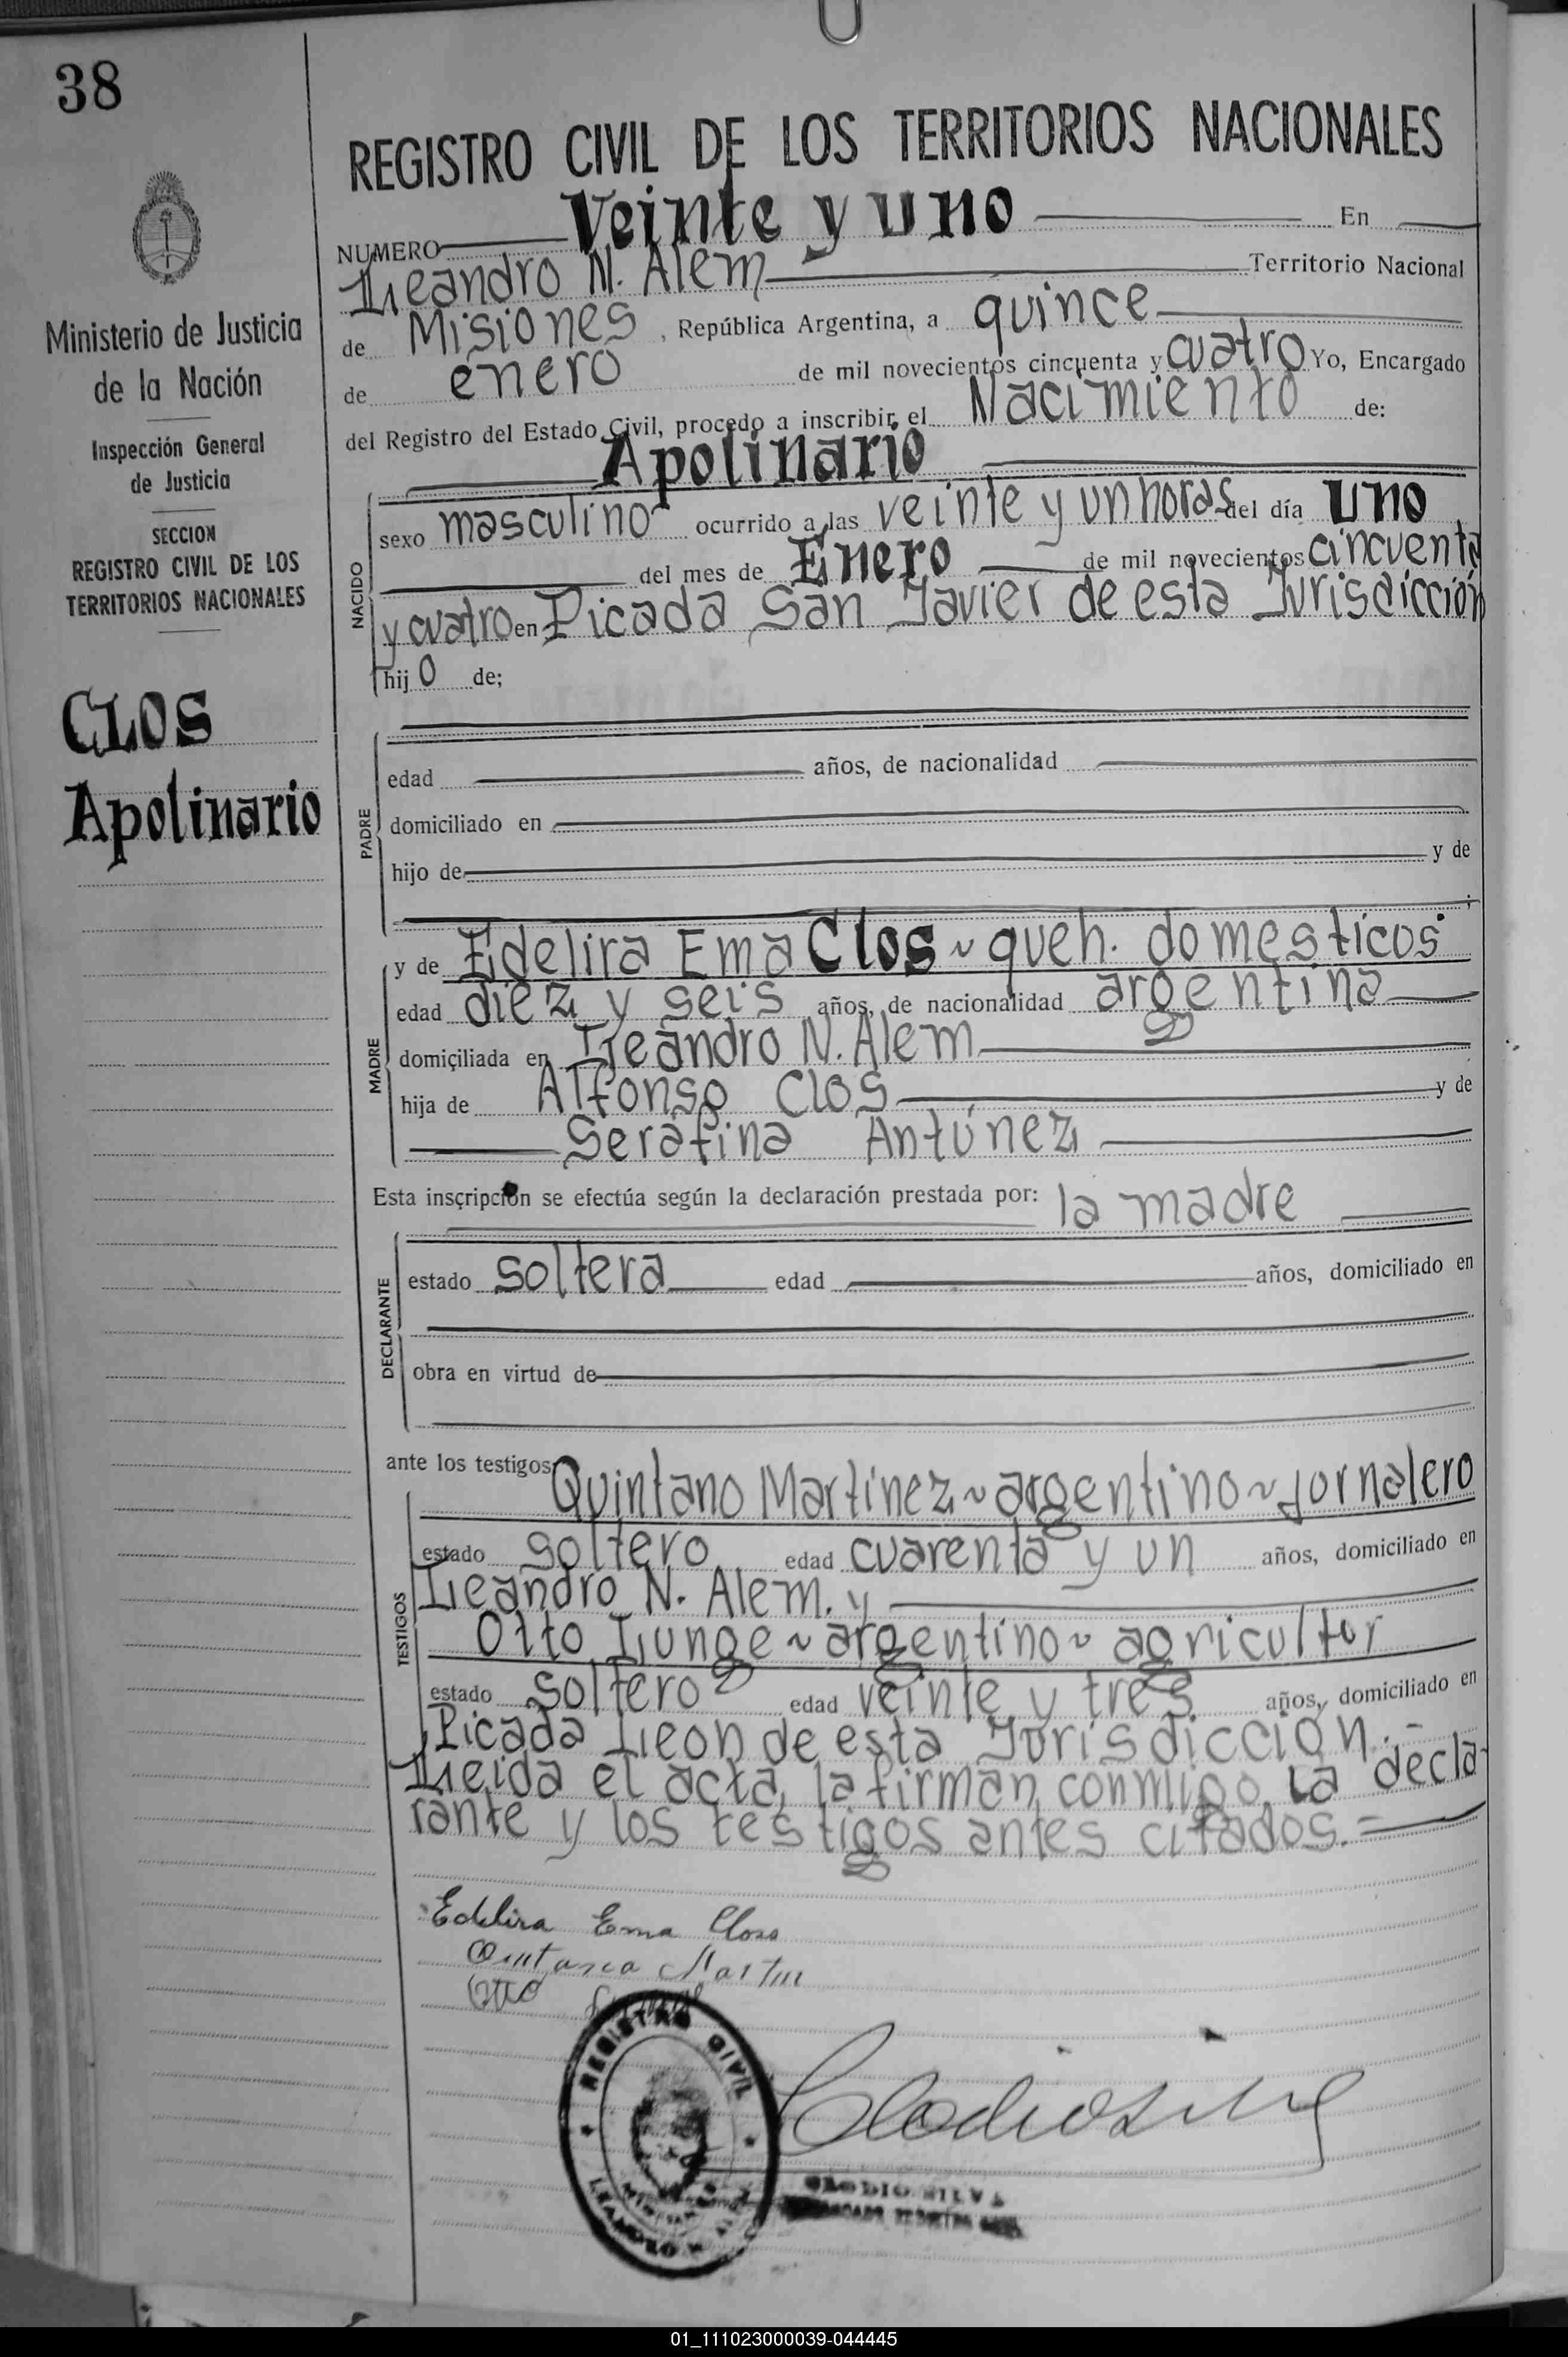 38
REGISTRO CIVIL DE LOS TERRITORIOS NACIONALES
NUMERO Veinte y uno En
Leandro N. Alem Territorio Nacional
de Misiones, República Argentina, a quince
de enero de mil novecientos cincuenta y cuatro Yo, Encargado
del Registro del Estado Civil, procedo a inscribir el Nacimiento de:
Apolinario
sexo masculino ocurrido a las veinte y un horas del día uno
del mes de Enero de mil novecientos cincuenta
y cuatro en Picada San Javier de esta Jurisdicción
hijo de;
NACIDO
edad años, de nacionalidad
domiciliado en
hijo de y de
;
PADRE
y de Edelira Ema Clos ~ queh. domesticos
edad diez y seis años, de nacionalidad argentina
domiciliada en Leandro N. Alem
hija de Alfonso Clos y de
Serafina Antúnez
MADRE
Esta inscripción se efectúa según la declaración prestada por: la madre
estado soltera edad años, domiciliado en
obra en virtud de
DECLARANTE
ante los testigos Quintano Martinez ~ argentino ~ jornalero
estado soltero edad cuarenta y un años, domiciliado en
Leandro N. Alem. y
Otto Lunge ~ argentino ~ agricultor
estado soltero edad veinte y tres años, domiciliado en
Picada Leon de esta Jurisdicción.-
Leida el acta, la firman conmigo, la decla-
rante y los testigos antes citados.=
TESTIGOS
Edelira Ema Clos
Otto
REGISTRO CIVIL
LEANDRO N.
CLODIO SILVA
Ministerio de Justicia
de la Nación
Inspección General
de Justicia
SECCION
REGISTRO CIVIL DE LOS
TERRITORIOS NACIONALES
CLOS
Apolinario
01_111023000039-044445